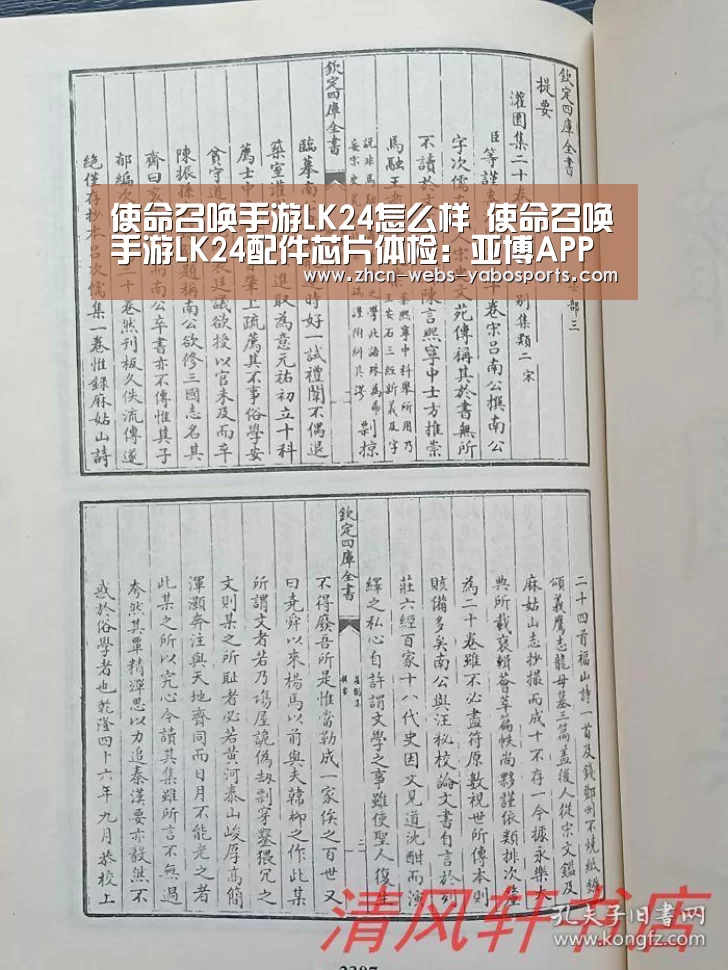 使命召唤手游LK24怎么样 使命召唤
手游LK24配件芯片体检：亚博APP
www.zhcn-webs-yabosports.com
欽定四庫全書
提要
灌園集二十卷
別集類二宋
集部三
臣等謹
卷宋呂南公撰南公
字次儒
人宋史文苑傳稱其於書無所
不讀於文
陳言熙寧中士方推崇
馬融王肅
剽掠
臨摹南
之時好一試禮闈不偶退
築室灌
進取為意元祐初立十科
薦士中
上疏薦其不事俗學安
貧守道
廷議欲授以官未及而卒
陳振孫
題稱南公欲修三國志名其
齋曰
而南公卒書亦不傳惟其子
郁編次
三十卷然刊板久佚流傳遂
絶僅存抄本呂次儒集一卷惟録麻姑山詩
欽定四庫全書
二十四首福山詩一首及錢鄧州不燒紙鏹
頌義鷹志龍母墓三篇蓋後人從宋文鑑及
麻姑山志抄撮而成十不存一今據永樂大
典所載裒輯薈萃篇帙尚夥謹依類排次釐
為二十卷雖不必盡符原數視世所傳本則
賅備多矣南公與汪秘校論文書自言於列
莊六經百家十八代史因文見道沈酣而演
繹之私心自許謂文學之事雖使聖人復生
欽定四庫全書
灌園集
提要
二
不得廢吾所是惟當勒成一家俟之百世又
曰堯舜以來楊馬以前與夫韓柳之作此某
所謂文者若乃塲屋詭偽刼剽穿鑿猥冗之
文則某之所耻者必若黄河泰山峻厚高簡
渾灝奔注與天地齊同而日月不能老之者
此某之所以究心今讀其集雖所言不無過
夸然其覃精殫思以力追秦漢要亦毅然不
惑於俗學者也乾隆四十六年九月恭校上
清风轩书店
孔夫子旧书网
www.kongfz.com
2307